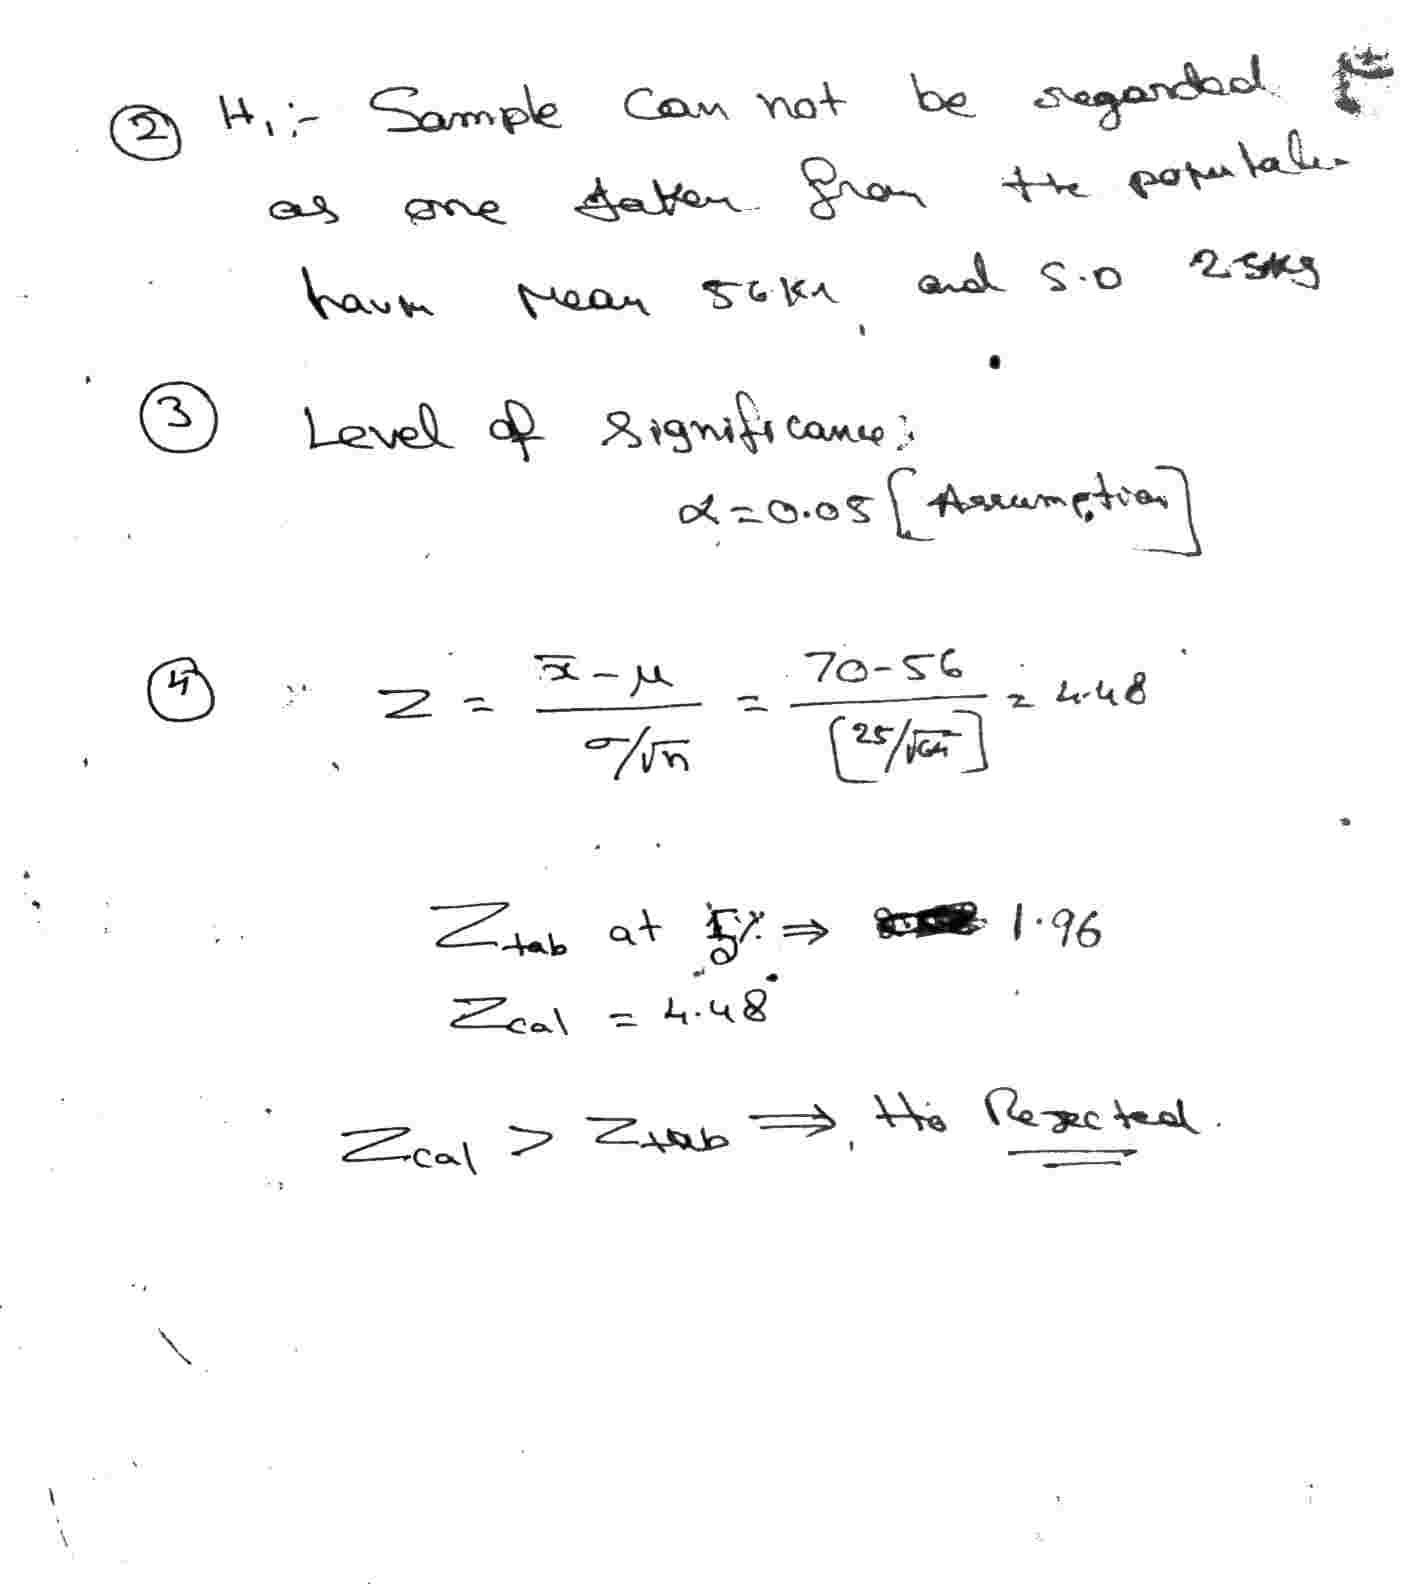 ② H₁:- Sample can not be regarded
as one taken from the
have Mean 56 Kg and S.D 25kg
③ Level of significance:
α = 0.05 [Assumption]
④ Z = x̄ - μ / σ/√n = 70-56 / [25/√64] = 4.48
Ztab at 5% ⇒ 1.96
Zcal = 4.48
Zcal > Ztab ⇒, Ho Rejected.